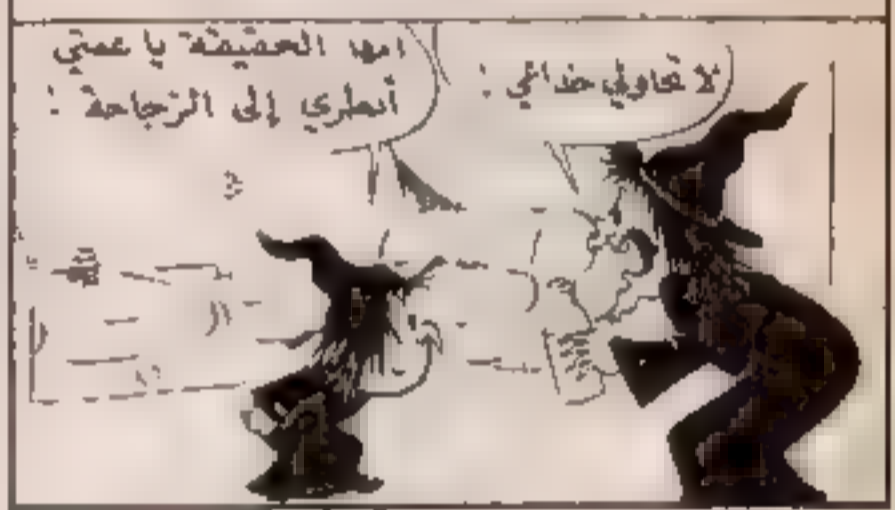 لا تحاولي خداعي !
انها الحقيقة يا عمتي
أنظري إلى الزجاجة !